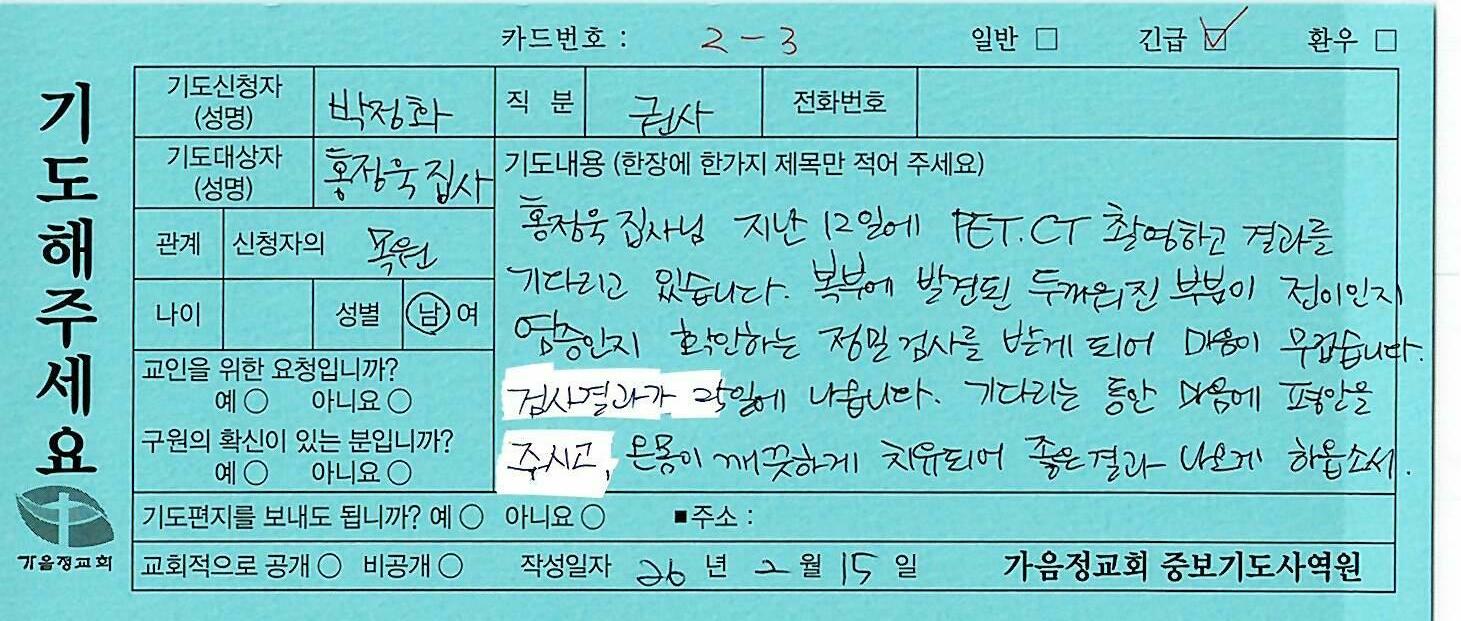 카드번호 : 2-3 일반 □ 긴급 ☑ 환우 □
기도해주세요
기도신청자 (성명) 박정화 직 분 권사 전화번호
기도대상자 (성명) 홍정욱집사
관계 신청자의 목원
나이 성별 남 여
교인을 위한 요청입니까?
예 ○ 아니요 ○
구원의 확신이 있는 분입니까?
예 ○ 아니요 ○
기도내용 (한장에 한가지 제목만 적어 주세요)
홍정욱집사님 지난 12일에 PET.CT 촬영하고 결과를
기다리고 있습니다. 복부에 발견된 두꺼워진 부분이 전이인지
염증인지 확인하는 정밀검사를 받게 되어 마음이 무겁습니다.
검사결과가 25일에 나옵니다. 기다리는 동안 마음에 평안을
주시고, 온몸이 깨끗하게 치유되어 좋은결과 나오게 하옵소서.
기도편지를 보내도 됩니까? 예 ○ 아니요 ○ ■주소 :
교회적으로 공개 ○ 비공개 ○ 작성일자 26 년 2 월 15 일 가음정교회 중보기도사역원
가음정교회